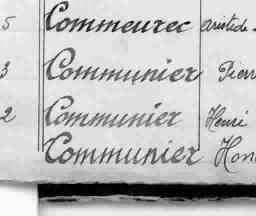 5 Commeurec Aristide
3 Communier Pierr
2 Communier Henri
Communier Hon